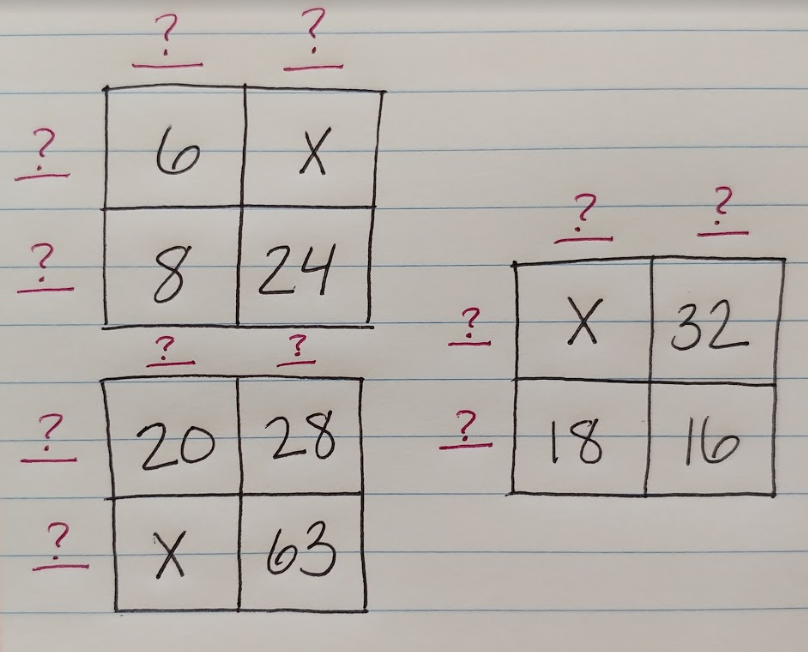 ? ?
? 6 X
? 8 24
? ?
? 20 28
? X 63
? ?
? X 32
? 18 16